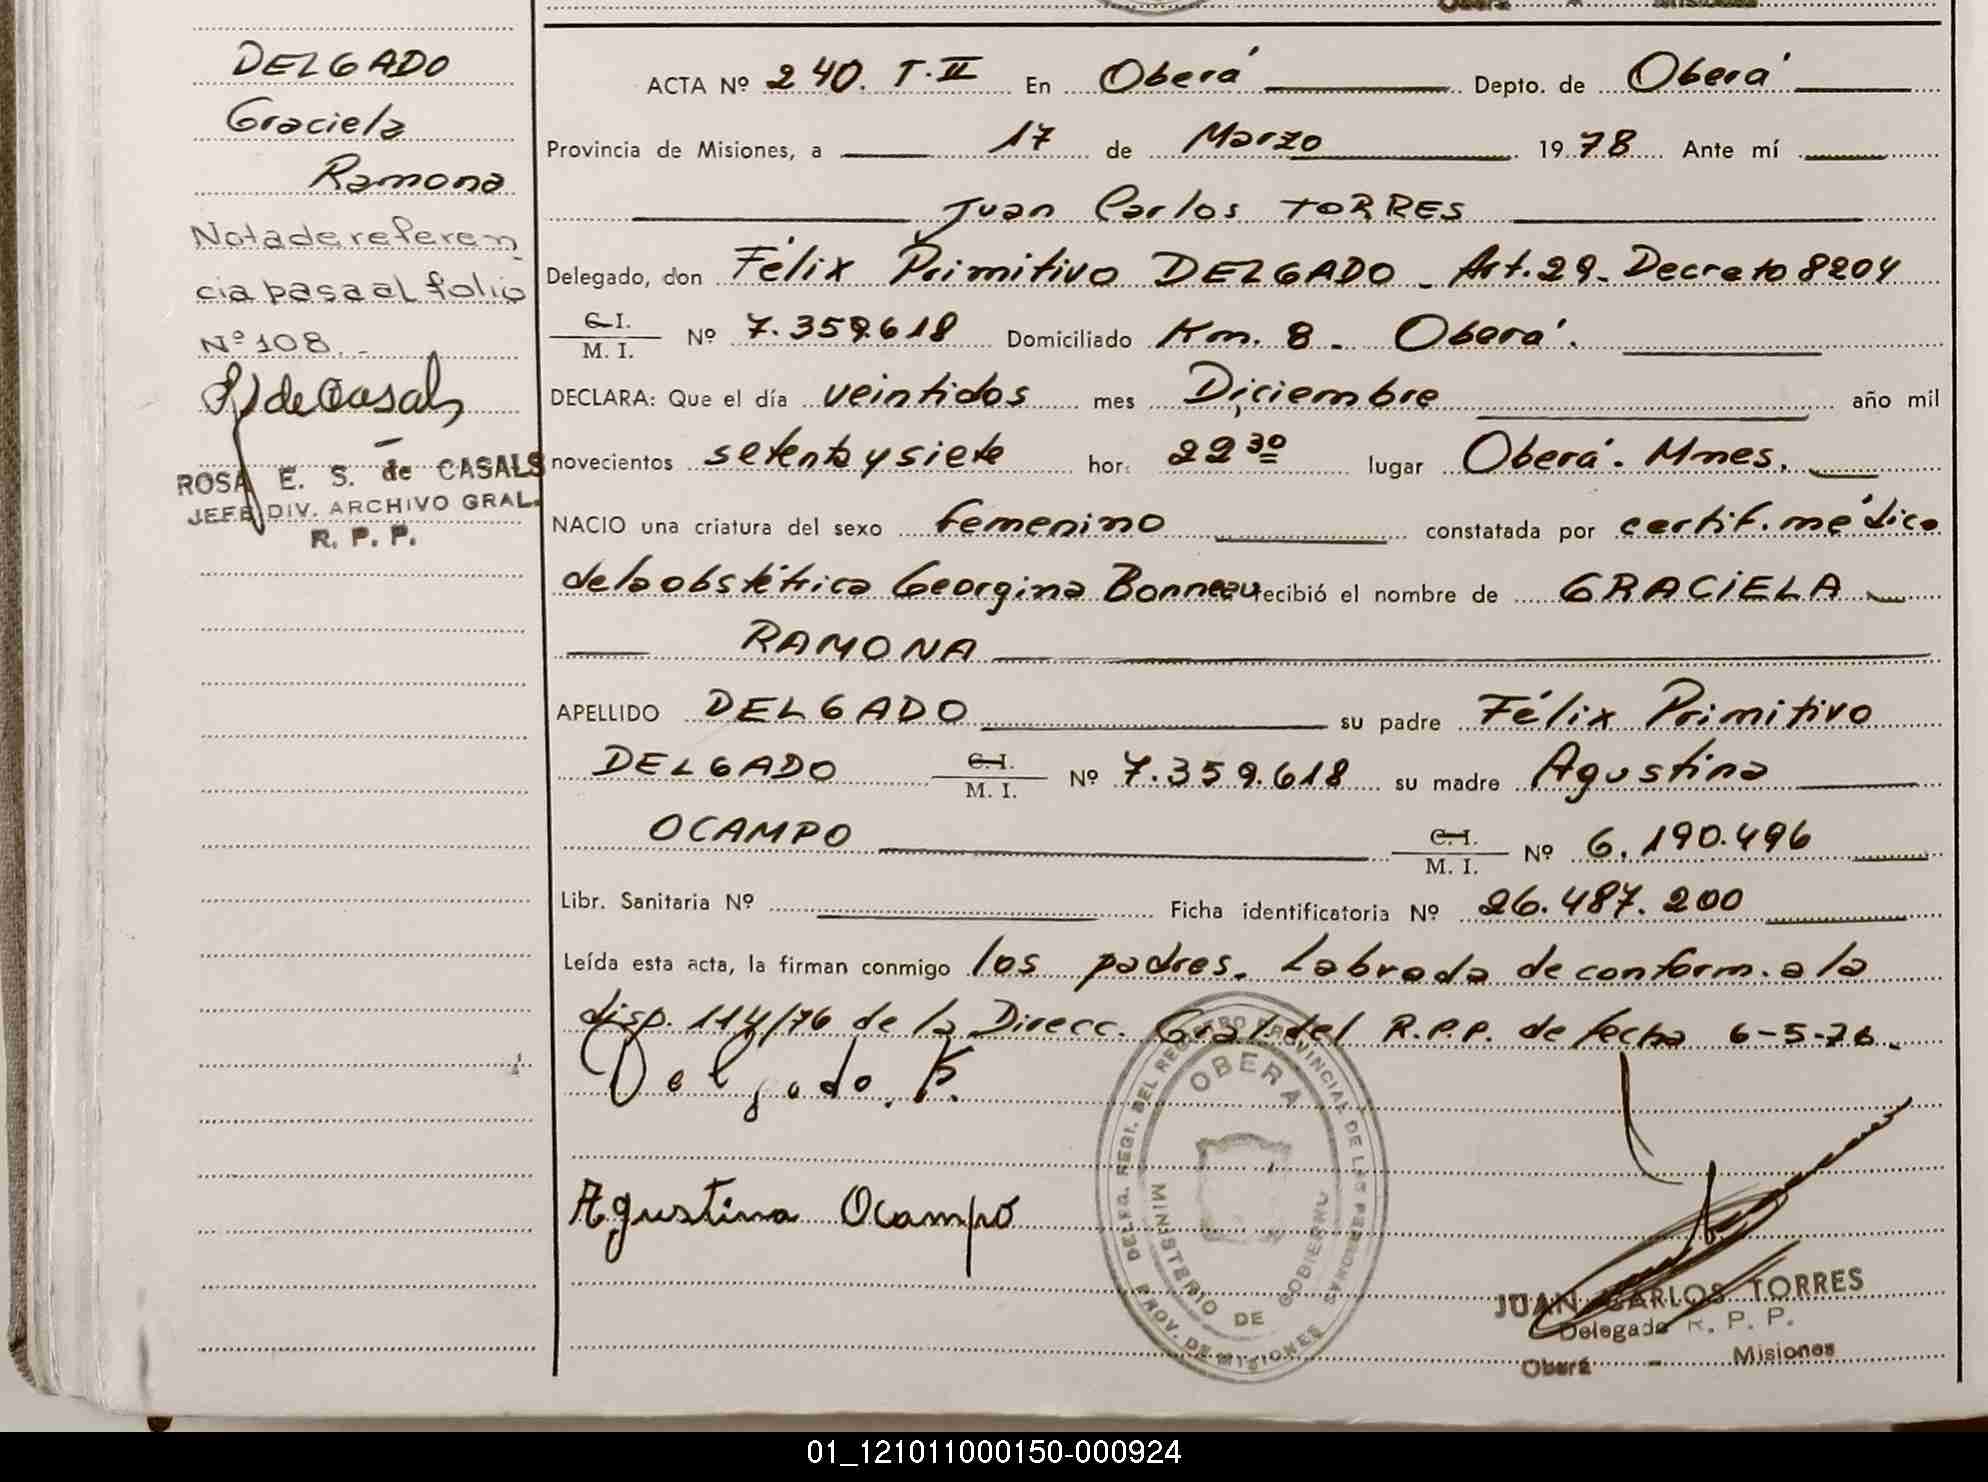 DELGADO
Graciela
Ramona
Nota de referen
cia pasa al folio
Nº 108.-
de Casals
ROSA E. S. de CASALS
JEFE DIV. ARCHIVO GRAL.
R. P. P.
ACTA Nº 240. T. II En Oberá Depto. de Oberá
Provincia de Misiones, a 17 de Marzo 1978 Ante mí
Juan Carlos TORRES
Delegado, don Félix Primitivo DELGADO - Art. 29 - Decreto 8204
C.I. M. I. Nº 7.359.618 Domiciliado Km. 8 - Oberá.
DECLARA: Que el día veintidos mes Diciembre año mil
novecientos setenta y siete hor: 22 30 lugar Oberá. Mnes.
NACIO una criatura del sexo femenino constatada por certif. médico
de la obstétrica Georgina Bonneau recibió el nombre de GRACIELA
RAMONA
APELLIDO DELGADO su padre Félix Primitivo
DELGADO C.I. M. I. Nº 7.359.618 su madre Agustina
OCAMPO C.I. M. I. Nº 6.190.496
Libr. Sanitaria Nº Ficha identificatoria Nº 26.487.200
Leída esta acta, la firman conmigo los padres. Labrada de conform. a la
disp. 114/76 de la Direcc. Gral. del R.P.P. de fecha 6-5-76.
Delgado. F.
Agustina Ocampo
DELEG. REGI. DEL REGISTRO PROVINCIAL DE LAS PERSONAS
OBERA
MINISTERIO DE GOBIERNO
PROV. DE MISIONES
JUAN CARLOS TORRES
Delegado R. P. P.
Oberá - Misiones
01_121011000150-000924